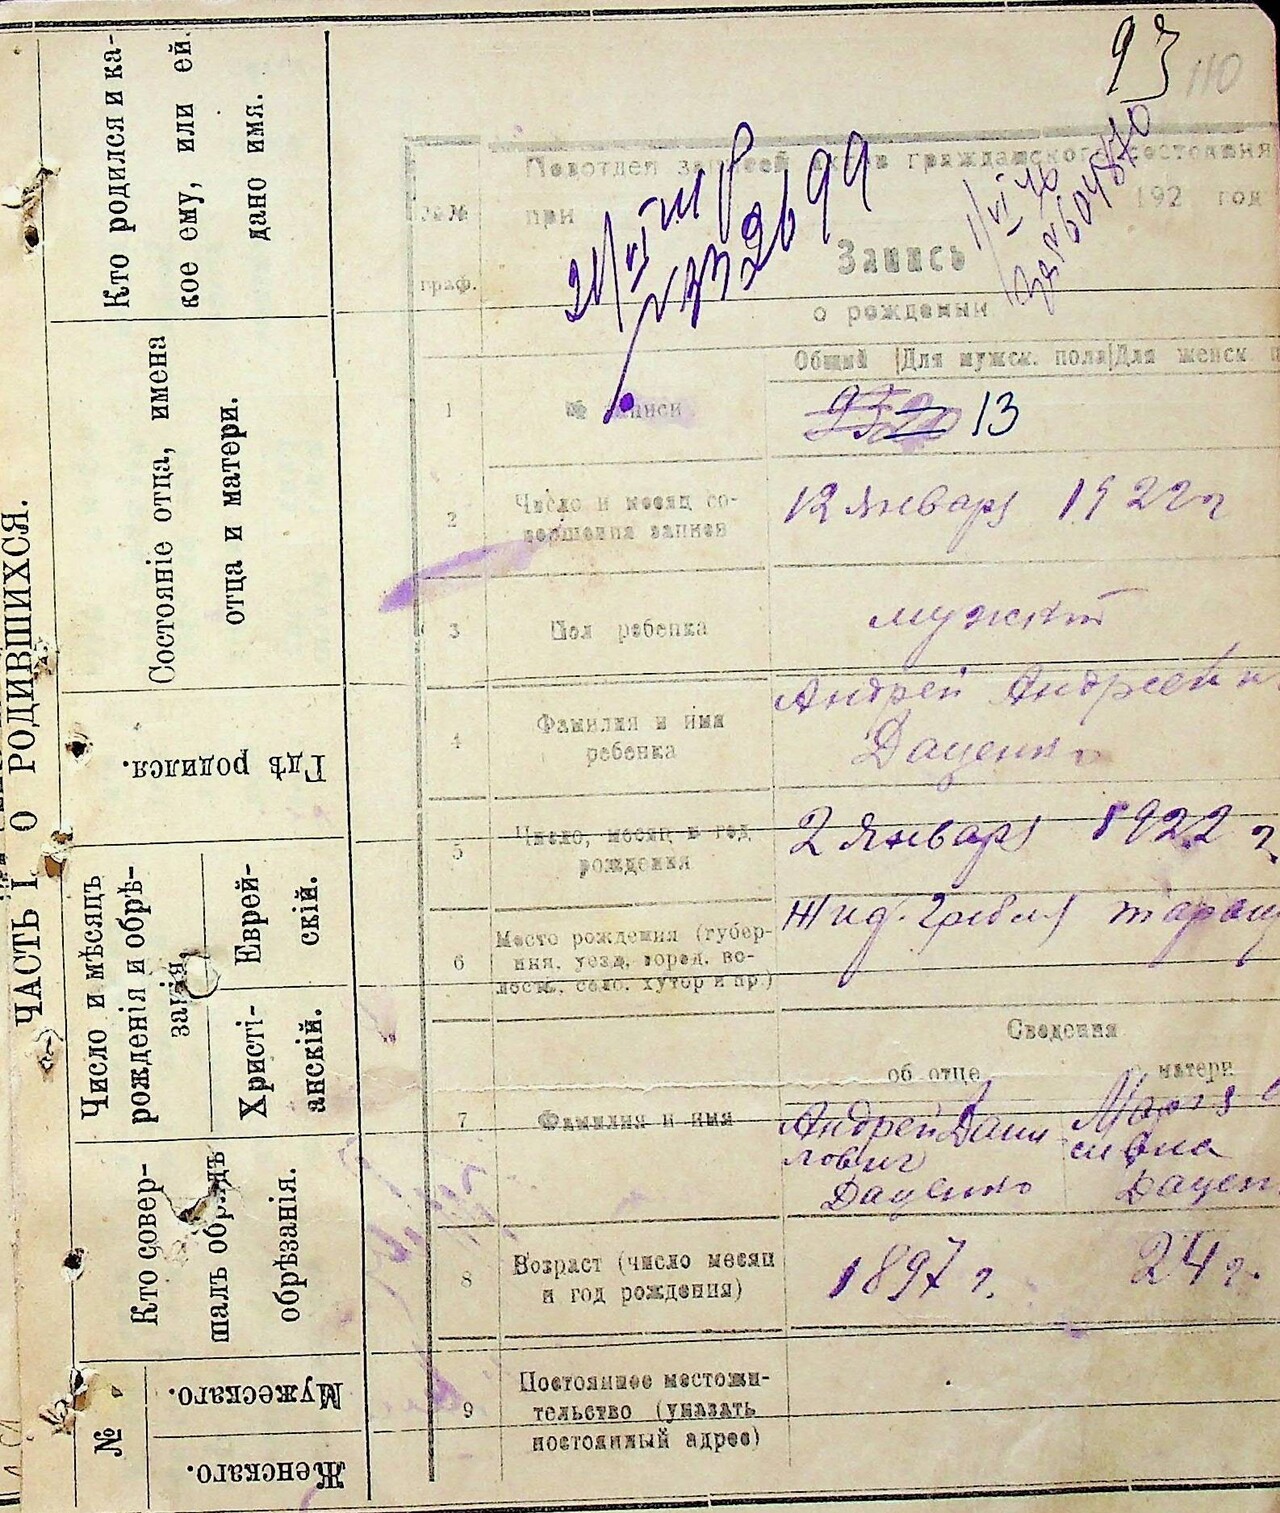 ЧАСТЬ I О РОДИВШИХСЯ.
Кто родился и ка-
кое ему, или ей
дано имя.
Состояніе отца, имена
отца и матери.
Гдѣ родился.
Число и мѣсяцъ
рожденія и обрѣ-
занія.
Еврей-
скій.
Христі-
анскій.
Кто совер-
шалъ обрядъ
обрѣзанія.
№
Мужескаго.
Женскаго.
93
110
Подотдел записей актов гражданского состояния
при 192 год
№№
граф.
21/VI
1/VI 76
604870
Запись
о рождении
Общий Для мужск. пола Для женск п
1 № записи 13
2 Число и месяц со-
вершения записи
12 Январь 1922 г
3 Пол ребенка мужской
4 Фамилия и имя
ребенка
Андрей Андреев
Даценко
5 Число, месяц и год
рождения
2 Январь 1922 г.
6 Место рождения (губер-
ния, уезд, город, во-
лость, село, хутор и пр.)
Жид. Гребля Таращ
Сведения
об отце о матери
7 Фамилия и имя
Андрей Дани
лович
Даценко
Дацен
8 Возраст (число месяц
и год рождения)
1897 г. 24 г.
9 Постоянное местожи-
тельство (указать
постоянный адрес)